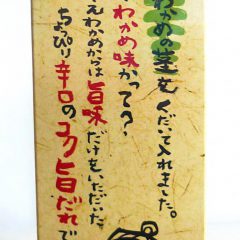 わかめの茎を
くだいて入れました。
わかめ味かって？
えわかめからは旨味だけをいただいた、
ちょっぴり辛口のコク旨だれで